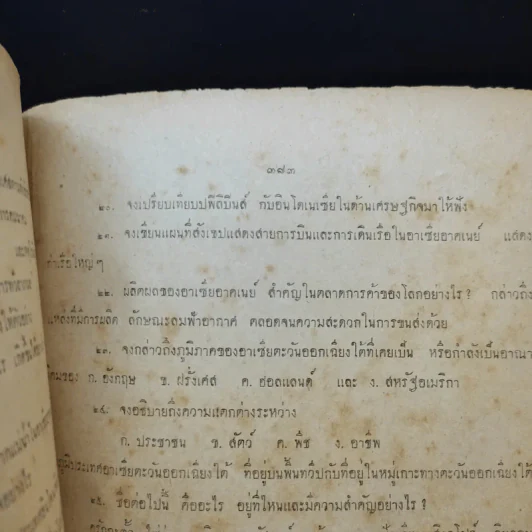 ๓๘๓
๒๐. จงเปรียบเทียบฟิลิปปินส์ กับอินโดเนเซียในด้านเศรษฐกิจมาให้ฟัง
๒๑. จงเขียนแผนที่สังเขปแสดงสายการบินและการเดินเรือในอาเซียอาคเนย์ แสดง
ท่าเรือใหญ่ๆ
๒๒. ผลิตผลของอาเซียอาคเนย์ สำคัญในตลาดการค้าของโลกอย่างไร? กล่าวถึง
แหล่งที่มีการผลิต ลักษณะลมฟ้าอากาศ ตลอดจนความสะดวกในการขนส่งด้วย
๒๓. จงกล่าวถึงภูมิภาคของอาเซียตะวันออกเฉียงใต้ที่เคยเป็น หรือกำลังเป็นอาณา
นิคมของ ก. อังกฤษ ข. ฝรั่งเศส ค. ฮอลแลนด์ และ ง. สหรัฐอเมริกา
๒๔. จงอธิบายถึงความแตกต่างระหว่าง
ก. ประชาชน ข. สัตว์ ค. พืช ง. อาชีพ
ภูมิประเทศอาเซียตะวันออกเฉียงใต้ ที่อยู่บนพื้นทวีปกับที่อยู่ในหมู่เกาะทางตะวันออกเฉียงใต้
๒๕. ชื่อต่อไปนี้ คืออะไร อยู่ที่ไหนและมีความสำคัญอย่างไร?